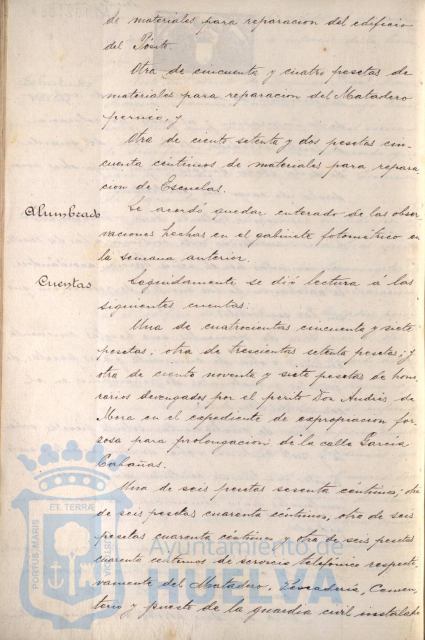 de materiales para reparacion del edificio
del Pósito.
Otra de cincuenta y cuatro pesetas de
materiales para reparacion del Matadero
y
Otra de ciento setenta y dos pesetas cin-
cuenta céntimos de materiales para repara
cion de Escuelas.
Alumbrado
Se acordó quedar enterado de las obser
vaciones hechas en el gabinete fotométrico en
la semana anterior.
Cuentas
Seguidamente se dió lectura á las
siguientes cuentas:
Una de cuatrocientas cincuenta y siete
pesetas, otra de trescientas setenta pesetas; y
otra de ciento noventa y siete pesetas de hono
rarios devengados por el perito Don Andrés de
Mora en el expediente de expropiacion for
zosa para prolongacion de la calle Garcia
Cabañas.
Una de seis pesetas sesenta céntimos; otra
de seis pesetas cuarenta céntimos, otra de seis
pesetas cuarenta céntimos y otra de seis pesetas
cuarenta centimos de servicio telefónico respecti
vamente del Matadero, Pescadería, Cemen
terio y puesto de la guardia civil instalado
PORTUS MARIS
ET TERRÆ
CUSTODIA
Ayuntamiento de
HUELVA